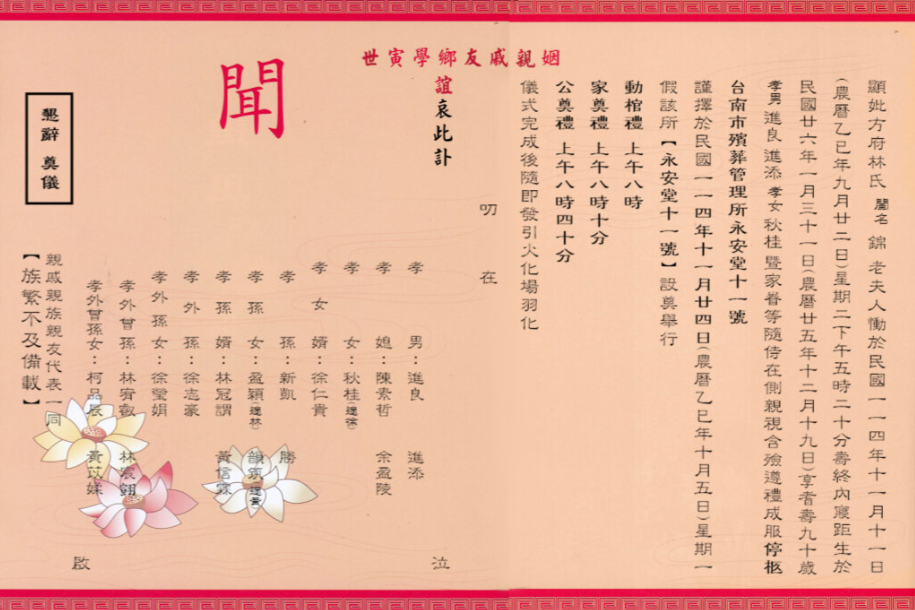 顯妣方府林氏 閨名 錦 老夫人慟於民國一一四年十一月十一日
(農曆乙巳年九月廿二日)星期二下午五時二十分壽終內寢距生於
民國廿六年一月三十一日(農曆廿五年十二月十九日)享耆壽九十歲
孝男 進良 進添 孝女 秋桂 暨家眷等隨侍在側親視含殮遵禮成服停柩
台南市殯葬管理所永安堂十一號
謹擇於民國一一四年十一月廿四日(農曆乙巳年十月五日)星期一
假該所【永安堂十一號】設奠舉行
動棺禮 上午八時
家奠禮 上午八時十分
公奠禮 上午八時四十分
儀式完成後隨即發引火化場羽化
叨 在
姻親戚友鄉學寅世
誼哀此訃
聞
孝 男:進良 進添
孝 媳:陳素哲 余盈陵
孝 女:秋桂(適徐)
孝 女 婿:徐仁貴
孝 孫:新凱 勝
孝 孫 女:盈穎(適林) 韻筑(適黃)
孝 孫 婿:林冠謂 黃信霖
孝 外 孫:徐志豪
孝 外 孫 女:徐瑩娟
孝 外 曾 孫:林宥叡 林宸翊
孝外曾孫女:柯品辰 黃苡媃
親戚親族親友代表一同
【族繁不及備載】
泣 啟
懇辭 奠儀